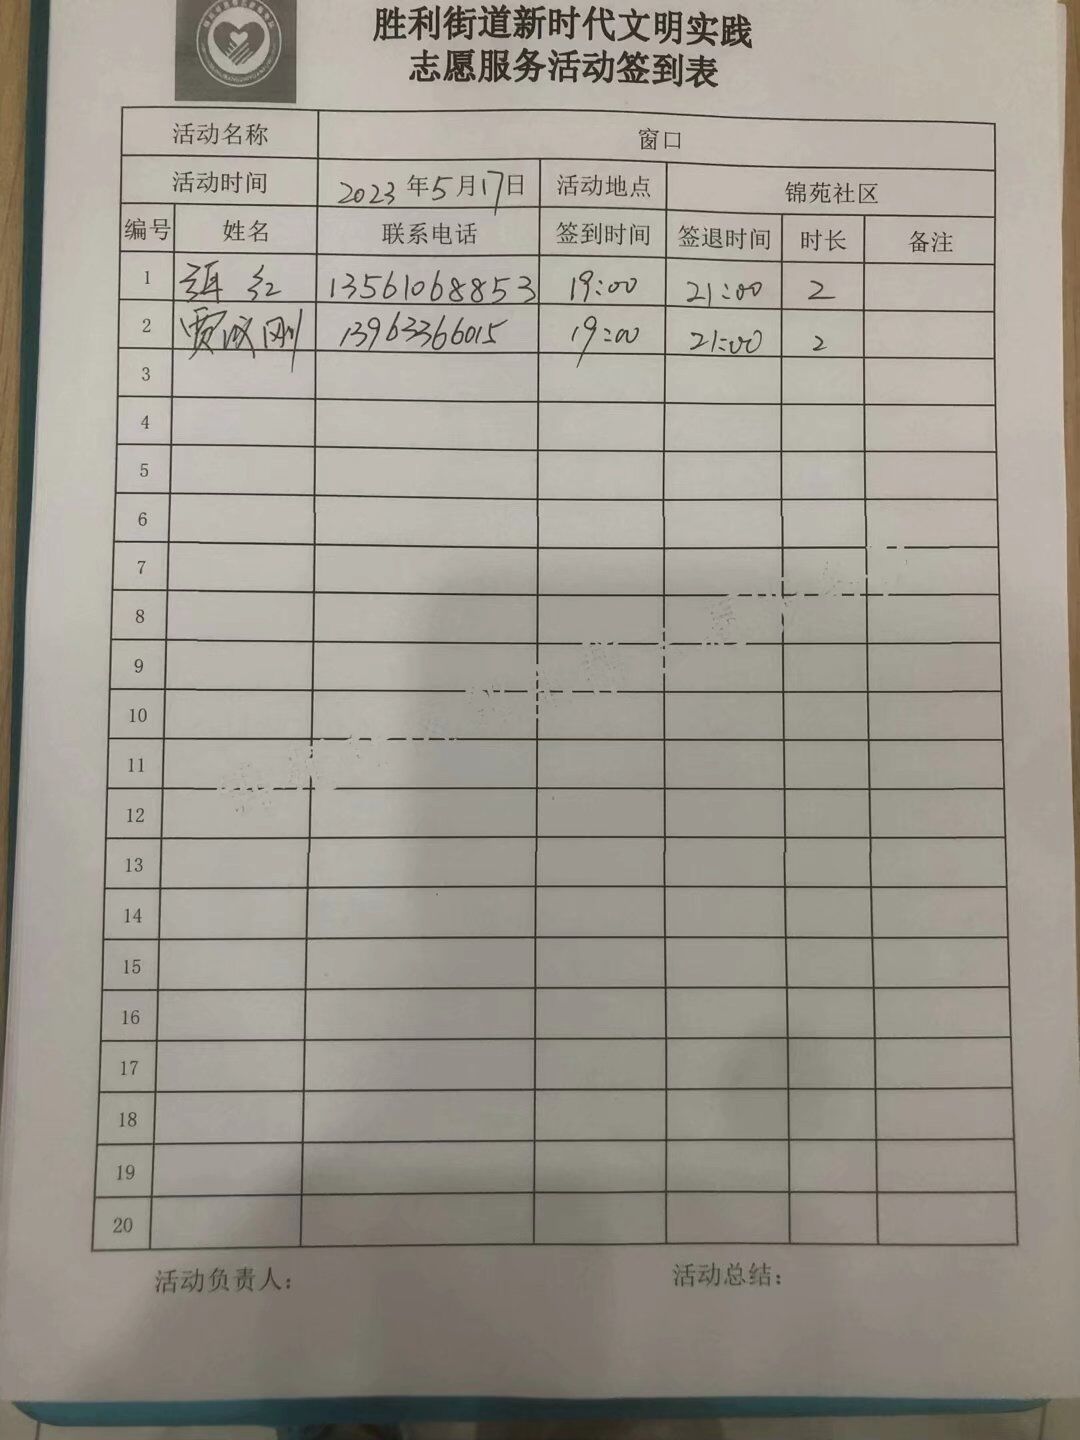 胜利街道新时代文明实践
志愿服务活动签到表
活动名称 窗口
活动时间 2023年5月17日 活动地点 锦苑社区
编号 姓名 联系电话 签到时间 签退时间 时长 备注
1 红 13561068853 19:00 21:00 2
2 贾成刚 13963366015 19:00 21:00 2
3
4
5
6
7
8
9
10
11
12
13
14
15
16
17
18
19
20
活动负责人： 活动总结：